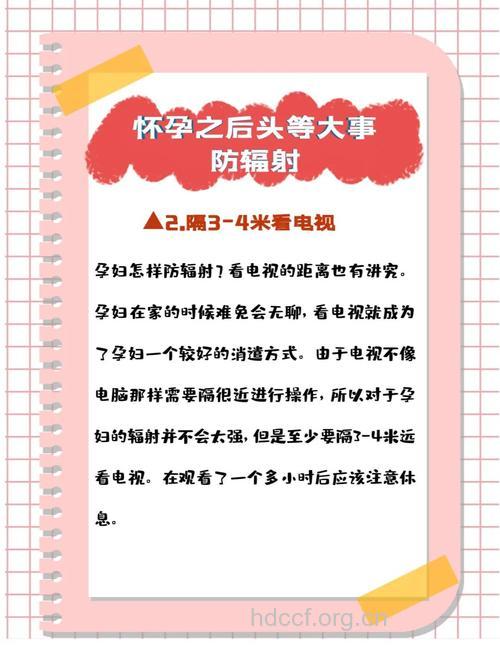 怀孕之后头等大事
防辐射
▲2.隔3-4米看电视
孕妇怎样防辐射？看电视的距离也有讲究。
孕妇在家的时候难免会无聊，看电视就成为
了孕妇一个较好的消遣方式。由于电视不像
电脑那样需要隔很近进行操作，所以对于孕
妇的辐射并不会太强，但是至少要隔3-4米远
看电视。在观看了一个多小时后应该注意休
息。
hdccf.org.cn